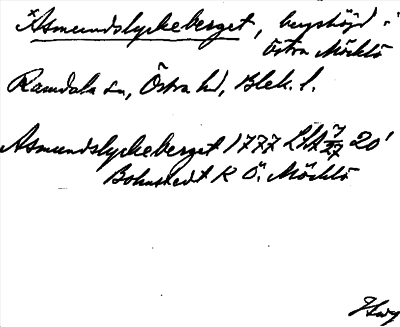 *Asmundslyckeberget, bergshöjd i
Östra Möcklö
Ramdala sn, Östra hd, Blek. l.
Asmundslyckeberget 1777 LSA 20'
Bohnstedt K Ö. Möcklö